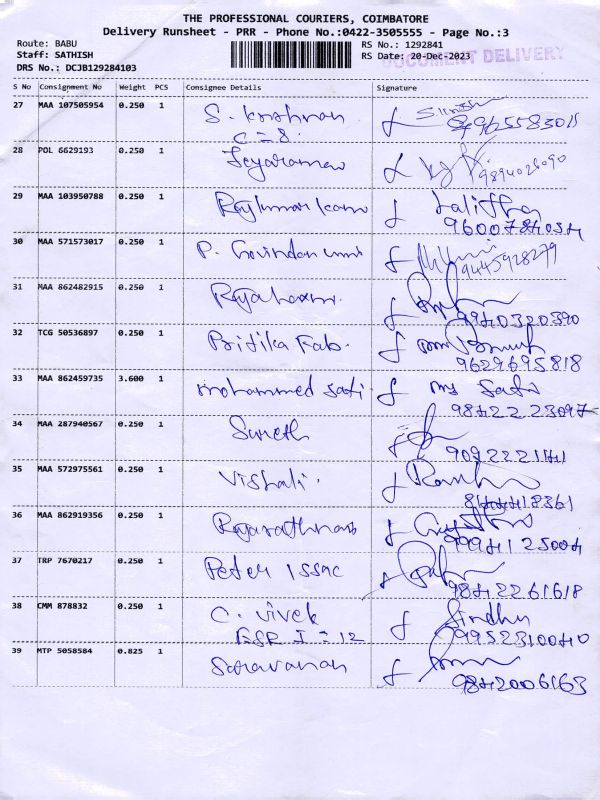 THE PROFESSIONAL COURIERS, COIMBATORE
Delivery Runsheet - PRR - Phone No.:0422-3505555 - Page No.:3
Route: BABU
Staff: SATHISH
DRS No.: DCJB129284103
RS No.: 1292841
RS Date: 20-Dec-2023
DOCUMENT DELIVERY
S No Consignment No Weight PCS Consignee Details Signature
27 MAA 107505954 0.250 1 S. Krishnan
C = 8.
28 POL 6629193 0.250 1 Jeyaraman
9894026090
29 MAA 103950788 0.250 1 Lalitha
9600784034
30 MAA 571573017 0.250 1 P. Govindan unni
9445928279
31 MAA 862482915 0.250 1
9940320390
32 TCG 50536897 0.250 1 Pritika Fab.
9629695818
33 MAA 862459735 3.600 1 mohammed safi
9842223097
34 MAA 287940567 0.250 1 Suresh
35 MAA 572975561 0.250 1 Vishali.
36 MAA 862919356 0.250 1 Rajarathnam
9994125004
37 TRP 7670217 0.250 1 Peter Issac
9842261618
38 CMM 878832 0.250 1 C. Vivek Sindhu
9952310040
39 MTP 5058584 0.825 1 Saravanan
9842006163